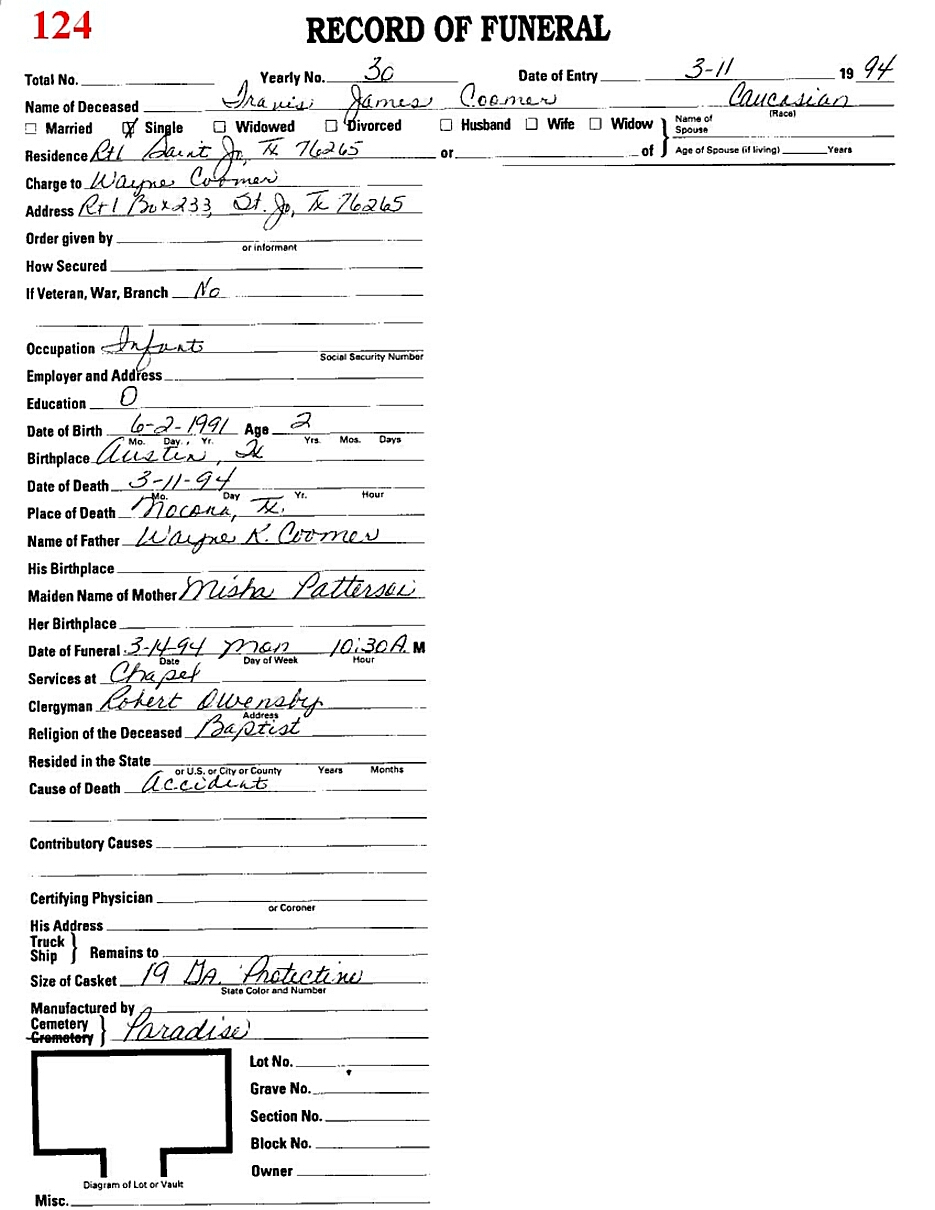 124
RECORD OF FUNERAL
Total No. Yearly No. 30 Date of Entry 3-11 19 94
Name of Deceased Travis James Coomer Caucasian
(Race)
☐ Married ☑ Single ☐ Widowed ☐ Divorced ☐ Husband ☐ Wife ☐ Widow } Name of Spouse
Residence Rt 1 Saint Jo, Tx 76265 or of Age of Spouse (if living) Years
Charge to Wayne Coomer
Address Rt 1 Box 233, St. Jo, Tx 76265
Order given by
or informant
How Secured
If Veteran, War, Branch No
Occupation Infant
Social Security Number
Employer and Address
Education 0
Date of Birth 6-2-1991 Age 2
Mo. Day, Yr. Yrs. Mos. Days
Birthplace Austin, Tx
Date of Death 3-11-94
Mo. Day Yr. Hour
Place of Death Nocona, Tx.
Name of Father Wayne K. Coomer
His Birthplace
Maiden Name of Mother Misha Patterson
Her Birthplace
Date of Funeral 3-14-94 Mon 10:30 A. M
Date Day of Week Hour
Services at Chapel
Clergyman Robert Owensby
Address
Religion of the Deceased Baptist
Resided in the State
or U.S. or City or County Years Months
Cause of Death Accident
Contributory Causes
Certifying Physician
or Coroner
His Address
Truck
Ship } Remains to
Size of Casket 19 Ga. Protective
State Color and Number
Manufactured by
Cemetery
Crematory } Paradise
Lot No.
Grave No.
Section No.
Block No.
Owner
Diagram of Lot or Vault
Misc.